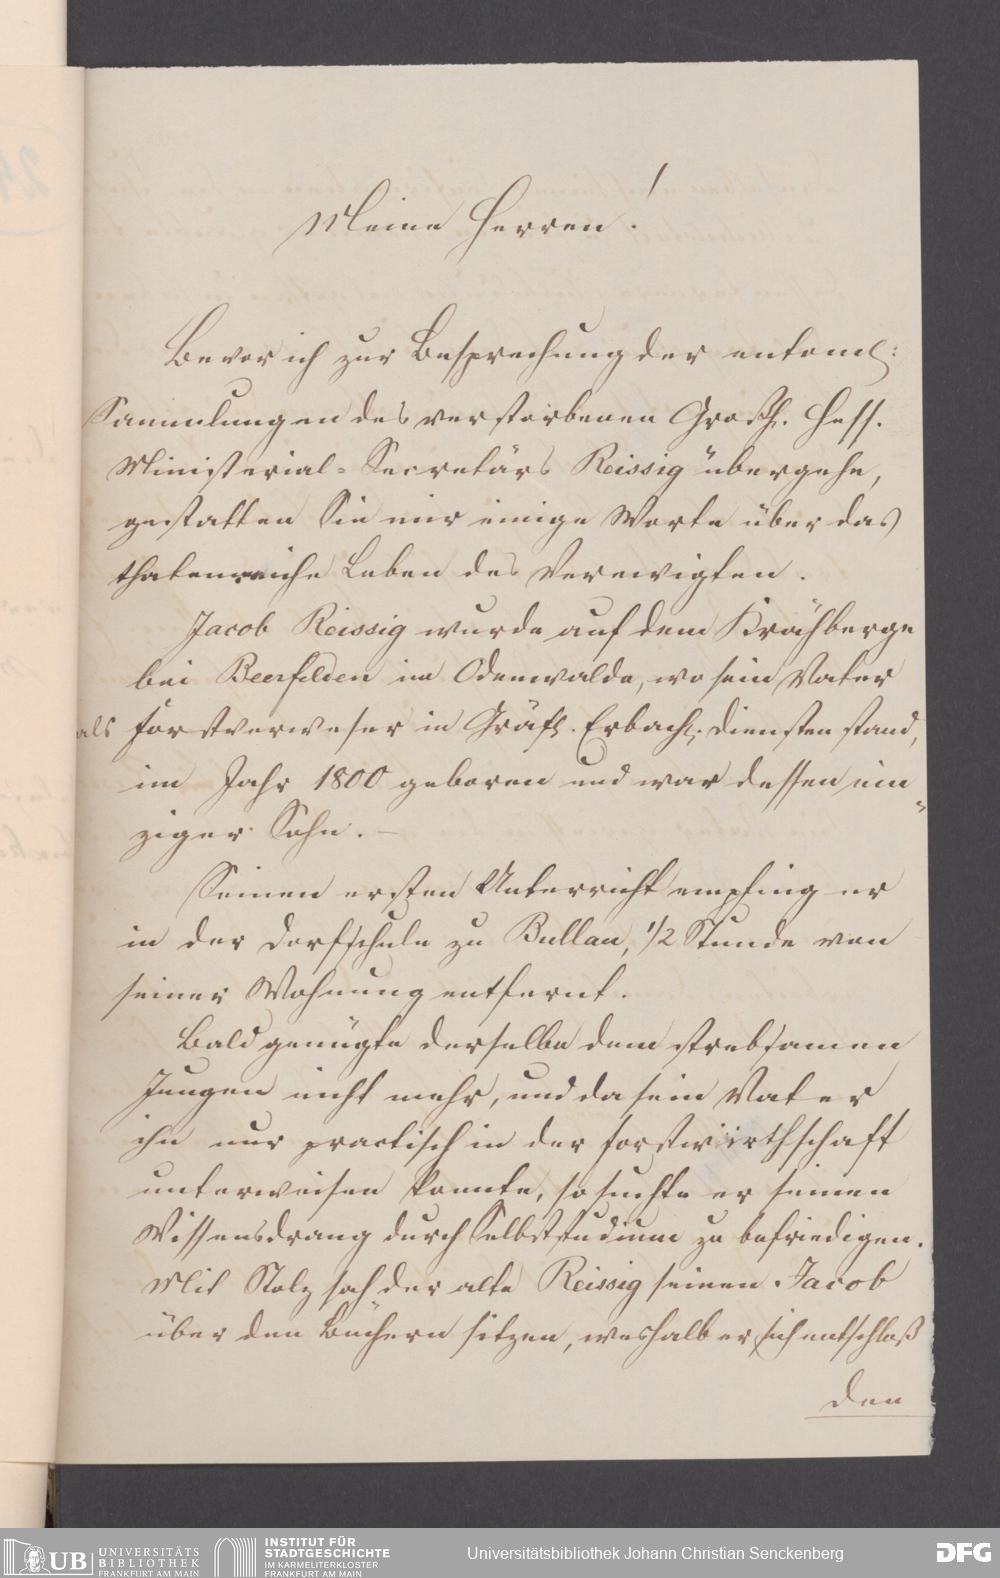 Meine Herren!
Bevor ich zur Besprechung der entoml:
Sammlungen des verstorbenen Großh. Hess.
Ministerial-Secretärs Reissig übergehe,
gestatten Sie mir einige Worte über das
thatenreiche Leben des Verewigten.
Jacob Reissig wurde auf dem Krähberge
bei Beerfelden im Odenwalde, wo sein Vater
als Forstverweser in Gräfl. Erbachl. Diensten stand,
im Jahr 1800 geboren und war dessen ein-
ziger Sohn. –
Seinen ersten Unterricht empfing er
in der Dorfschule zu Bullau, 1/2 Stunde von
seiner Wohnung entfernt.
Bald genügte derselbe dem strebsamen
Jungen nicht mehr, und da sein Vater
ihn nur practisch in der Forstwirthschaft
unterweisen konnte, so suchte er seinen
Wissensdrang durch Selbststudium zu befriedigen.
Mit Stolz sah der alte Reissig seinen Jacob
über den Büchern sitzen, weshalb er sich entschloß
den
UB UNIVERSITÄTS
BIBLIOTHEK
FRANKFURT AM MAIN
INSTITUT FÜR
STADTGESCHICHTE
IM KARMELITERKLOSTER
FRANKFURT AM MAIN
Universitätsbibliothek Johann Christian Senckenberg
DFG